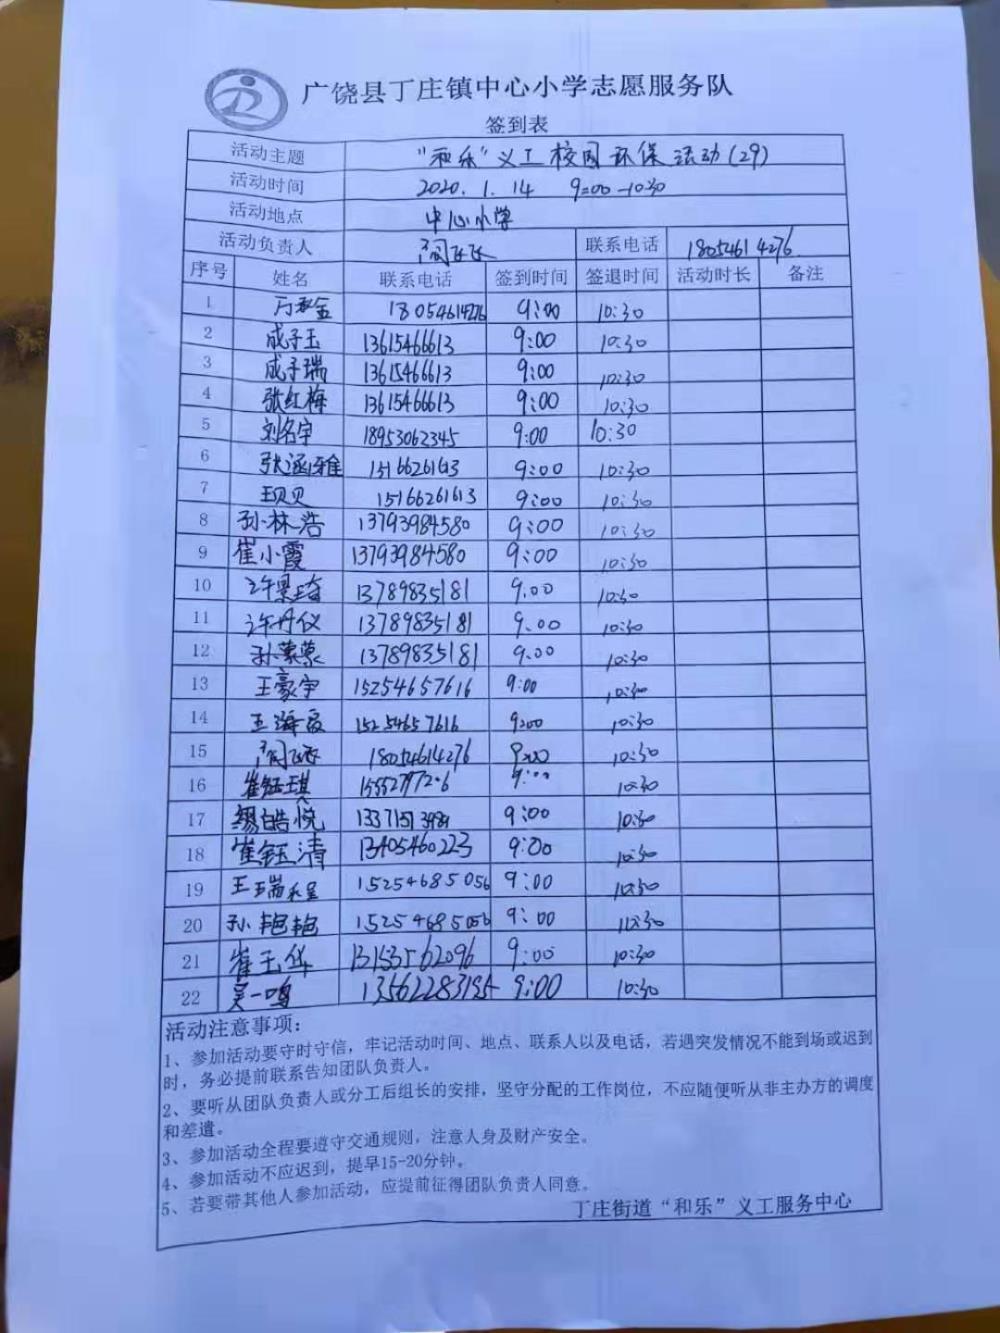 广饶县丁庄镇中心小学志愿服务队
签到表
活动主题 “和乐”义工校园环保活动(29)
活动时间 2020.1.14 9:00-10:30
活动地点 中心小学
活动负责人 联系电话 18054614276
序号 姓名 联系电话 签到时间 签退时间 活动时长 备注
1 18054614276 9:00 10:30
2 成子玉 13615466613 9:00 10:30
3 成子瑞 13615466613 9:00 10:30
4 张红梅 13615466613 9:00 10:30
5 刘名宇 18953062345 9:00 10:30
6 张涵雅 9:00 10:30
7 王贝贝 15166261613 9:00 10:30
8 孙林浩 13793984580 9:00 10:30
9 崔小霞 13793984580 9:00 10:30
10 13789835181 9.00 10:30
11 许丹仪 13789835181 9.00 10:30
12 孙蒙蒙 13789835181 9.00 10:30
13 王豪宇 15254657616 9:00 10:30
14 王海霞 15254657616 9:00 10:30
15 18054614276 9:00 10:30
16 崔钰琪 9:00 10:30
17 皓悦 9:00 10:30
18 崔钰清 13405460223 9:00 10:30
19 15254685056 9:00 10:30
20 孙艳艳 15254685056 9:00 10:30
21 崔玉华 13153562096 9:00 10:30
22 吴一鸣 13562283195 9:00 10:30
活动注意事项:
1、参加活动要守时守信，牢记活动时间、地点、联系人以及电话，若遇突发情况不能到场或迟到
时，务必提前联系告知团队负责人。
2、要听从团队负责人或分工后组长的安排，坚守分配的工作岗位，不应随便听从非主办方的调度
和差遣。
3、参加活动全程要遵守交通规则，注意人身及财产安全。
4、参加活动不应迟到，提早15-20分钟。
5、若要带其他人参加活动，应提前征得团队负责人同意。
丁庄街道“和乐”义工服务中心